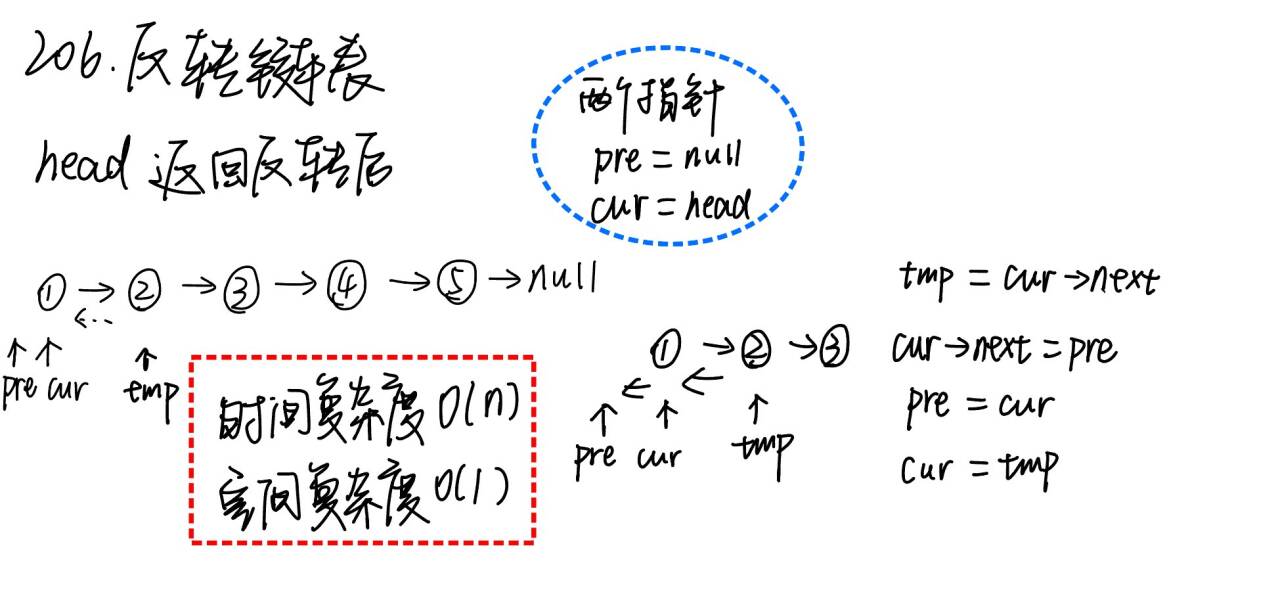 206.反转链表
head 返回反转后
两个指针
pre = null
cur = head
① → ② → ③ → ④ → ⑤ → null
pre cur tmp
时间复杂度 O(n)
空间复杂度 O(1)
① → ② → ③
pre cur tmp
tmp = cur → next
cur → next = pre
pre = cur
cur = tmp